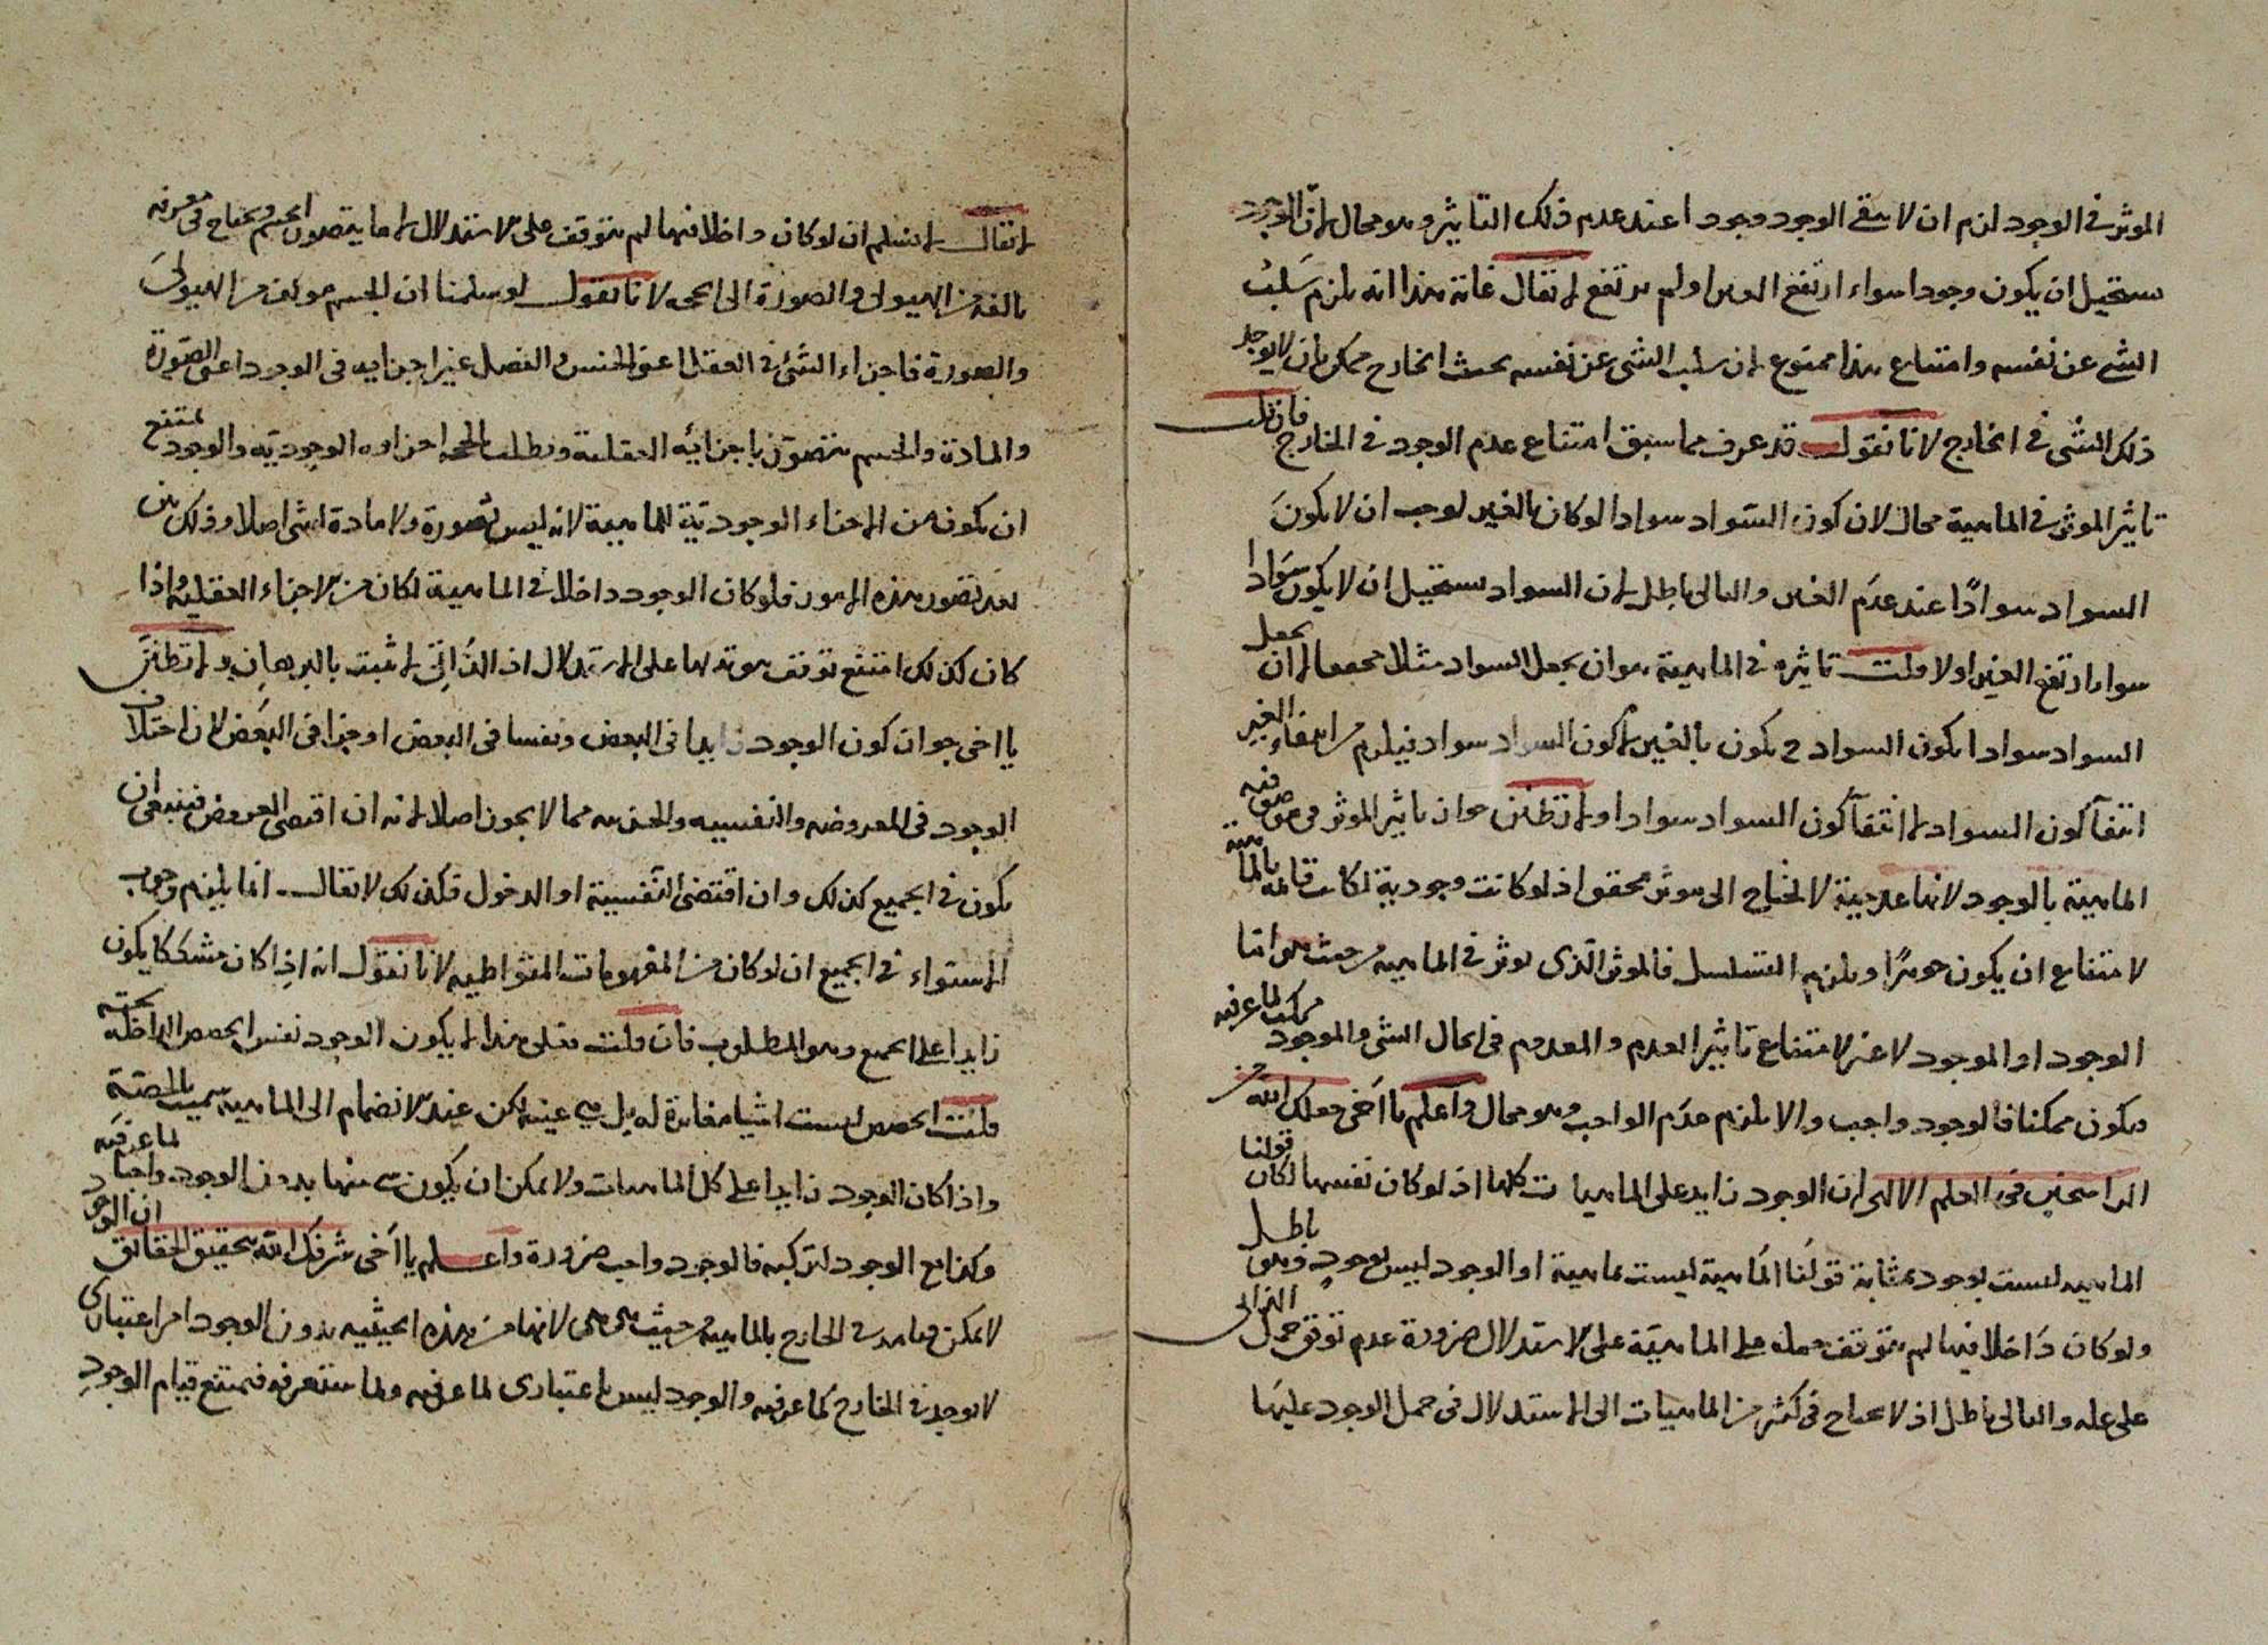 الموثر في الوجود لزم ان لا يبقى الوجود وجودا عند عدم ذلك التاثير وهو محال لان الوجود
يستحيل ان يكون وجودا سواء ارتفع الغير او لم يرتفع لا يقال غاية هذا انه يلزم سلب
الشي عن نفسه وامتناع هذا ممنوع لان سلب الشي عن نفسه بحسب الخارج ممكن بان لا يوجد
ذلك الشى في الخارج لانا نقول قد عرف مما سبق امتناع عدم الوجود في الخارج فان قلت
تاثير الموثر في الماهية محال لان كون السواد سوادا لو كان بالغير لوجب ان لا يكون
السواد سوادًا عند عدم الغير والتالى باطل لان السواد يستحيل ان لا يكون سوادا
سواء ارتفع الغير او لا قلت تاثيره في الماهية هو ان يجعل السواد مثلا لا ان يجعل
السواد سوادا يكون السواد ح يكون بالغير لا كون السواد سواد فيلزم من انتفاء الغير
انتفآ كون السواد لا انتفآ كون السواد سوادا ولا تظنن جواز تاثير الموثر في موصوفيه
الماهية بالوجود لانها عدمية لا تحتاج الى موثر محقق اذ لو كانت وجودية لكانت قائمه بالماهية
لامتناع ان يكون جوهرًا ويلزم التسلسل فالموثر الذى يوثر في الماهيه من حيث هو اما
الوجود او الموجود لا غير لامتناع تاثير العدم والمعدوم في الحال الشى والموجود مركب لما عرفته
فيكون ممكنا فالوجود واجب والا يلزم عدم الواجب وهو محال واعلم يا اخى جعلك الله من
الراسخين في العلم الالهى ان الوجود زايد على الماهيات كلها اذ لو كان نفسها لكان قولنا
الماهيه ليست بوجود بمثابة قولنا الماهية ليست بماهية او الوجود ليس بوجود وهو باطل
ولو كان داخلا فيها لم يتوقف حمله على الماهية على الاستدلال ضرورة عدم توقف حمل الذاتى
على علة والتالى باطل اذ لا يحتاج في كثير من الماهيات الى الاستدلال في حمل الوجود عليها
لا يقال لا نسلم ان لو كان داخلا فيها لم يتوقف على الاستدلال لانا ما يتصور الجسم ويحتاج في معرفة
تالفه من الهيولى والصورة الى الحجه لانا نقول لو سلمنا ان الجسم مولف من الهيولى
والصورة فاجزاء الشئ في العقل اعنى الجنس والفصل غير اجزايه في الوجود اعنى الصورة
والمادة والجسم يتصور باجزائه العقلية ويطلب بالحجه اجزاوه الوجودية والوجود يمتنع
ان يكون من الاجزاء الوجودية للماهية لانه ليس بصورة ولا مادة لشى اصلا وذلك بين
بعد تصور هذه الامور فلو كان الوجود داخلا في الماهية لكان من الاجزاء العقلية واذا
كان كذلك امتنع توقف ثبوته لها على الاستدلال اذ الذاتى لا يثبت بالبرهان ولا تظنن
يا اخى جواز كون الوجود زايدا في البعض ونفسا في البعض او جزا في البعض لان اختلاف
الوجود في المعروضه والنفسيه والجزئيه مما لا يجوز اصلا لانه ان اقتضى العروض فينبغى ان
يكون في الجميع كذلك وان اقتضى النفسية او الدخول فكذلك لا يقال انما يلزم وجوب
الاستواء في الجميع ان لو كان من المفهومات المتواطيه لانا نقول انه اذا كان مشككا يكون
زايدا على الجميع وهو المطلوب فان قلت فعلى هذا لا يكون الوجود نفس الحصص الداخلة تحته
قلنت الحصص ليست اشيا مغايرة له بل هى عينه لكن عند الانضمام الى الماهيه سميت بالحصة
واذا كان الوجود زايدا على كل الماهيات ولا يمكن ان يكون شى منها بدون الوجود واجبا لما عرفته
وكذا مع الوجود لتركبه فالوجود واجب ضرورة واعلم يا اخى شرفك الله بتحقيق الحقائق ان الوجود
لا يمكن قيامه في الخارج بالماهية من حيث هى هى لانها من هذه الحيثيه بدون الوجود امر اعتبارى
لا يوجد في الخارج كما عرفته والوجود ليس باعتبارى لما عرفته ولما ستعرفه فيمتنع قيام الوجود